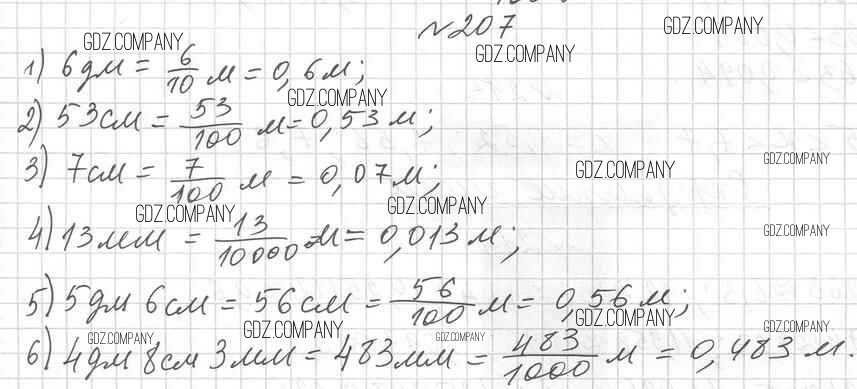 №207
GDZ.COMPANY
GDZ.COMPANY
GDZ.COMPANY
1) 6дм = 6/10 м = 0,6м;
GDZ.COMPANY
2) 53см = 53/100 м = 0,53 м;
GDZ.COMPANY
3) 7см = 7/100 м = 0,07м;
GDZ.COMPANY
GDZ.COMPANY
GDZ.COMPANY
4) 13мм = 13/10000 м = 0,013 м;
GDZ.COMPANY
5) 5дм 6см = 56см = 56/100 м = 0,56 м;
GDZ.COMPANY
GDZ.COMPANY
GDZ.COMPANY
GDZ.COMPANY
GDZ.COMPANY
6) 4дм 8см 3мм = 483мм = 483/1000 м = 0,483 м.